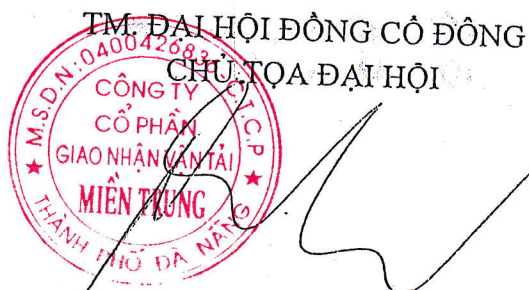 TM. ĐẠI HỘI ĐỒNG CỔ ĐÔNG
CHỦ TỌA ĐẠI HỘI
M.S.D.N: 040042683 C.T.C.P
CÔNG TY
CỔ PHẦN
GIAO NHẬN VẬN TẢI
MIỀN TRUNG
THÀNH PHỐ ĐÀ NẴNG